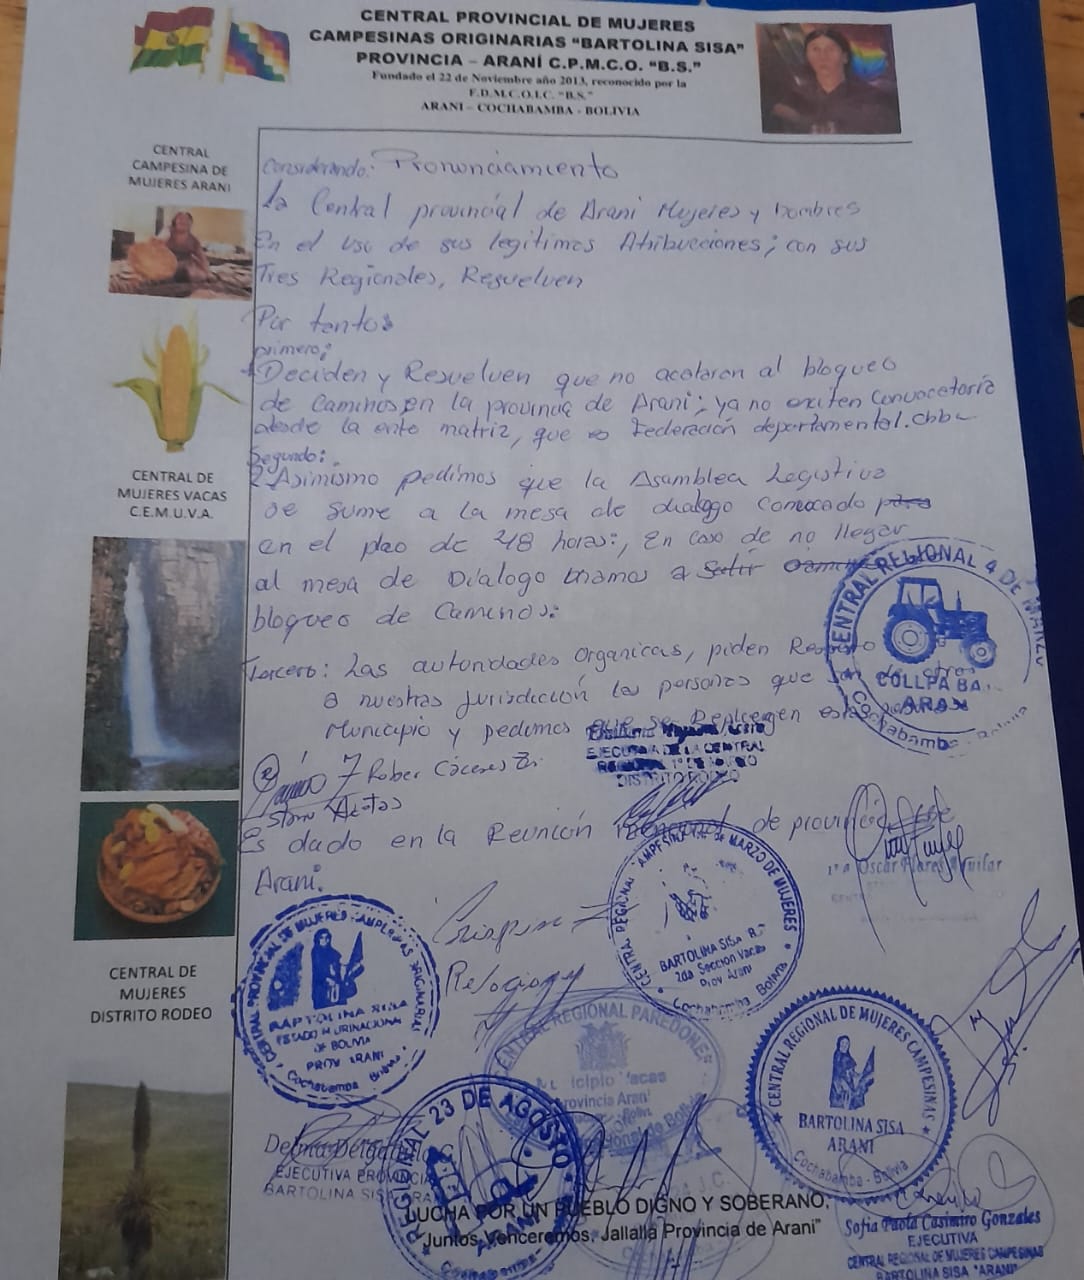 CENTRAL PROVINCIAL DE MUJERES
CAMPESINAS ORIGINARIAS “BARTOLINA SISA”
PROVINCIA – ARANÍ C.P.M.C.O. “B.S.”
Fundado el 22 de Noviembre año 2013, reconocido por la
F.D.M.C.O.I.C. “B.S.”
ARANI – COCHABAMBA - BOLIVIA
CENTRAL
CAMPESINA DE
MUJERES ARANI
CENTRAL DE
MUJERES VACAS
C.E.M.U.V.A.
CENTRAL DE
MUJERES
DISTRITO RODEO
Considerando: Pronunciamiento
La Central provincial de Arani Mujeres y hombres
En el uso de sus legitimas Atribucciones; con sus
Tres Regionales, Resuelven
Por tantos
primero;
Deciden y Resuelven que no acataran al bloqueo
de Caminos en la provincia de Arani; ya no exiten Convocatoria
desde la ente matriz, que es Federación departamental. Cbba
Segundo:
2 Asimismo pedimos que la Asamblea Legistiva
se sume a la mesa de dialogo Convocado para
en el plao de 48 horas:, En caso de no llegar
al mesa de Dialogo a Salir
bloqueo de Caminos:
Tercero: Las autoridades Organicas, piden
a nuestras Jurisdicción las personas que son de otros
Municipio y pedimos que se Replegen
Rober Cáceres
Stario Actas
Es dado en la Reunión de provincia
Arani.
CENTRAL REGIONAL 4 DE MARZO
COLLPA
ARANI
Cochabamba -
EJECUTIVA DE LA CENTRAL
DISTRITO RODEO
Oscar Flores Aguilar
CENTRAL REGIONAL CAMPESINA DE MARZO DE MUJERES
BARTOLINA SISA
2da Sección Vacas
Prov Arani
Cochabamba Bolivia
CENTRAL PROVINCIAL DE MUJERES CAMPESINAS ORIGINARIAS
BARTOLINA SISA
ESTADO PLURINACIONAL
DE BOLIVIA
PROV. ARANI
Cochabamba Bolivia
CENTRAL REGIONAL PAREDONES
Municipio Vacas
Provincia Arani
REGIONAL 23 DE AGOSTO
ARANI
CENTRAL REGIONAL DE MUJERES CAMPESINAS
BARTOLINA SISA
ARANI
Cochabamba - Bolivia
Delma Delgadillo
EJECUTIVA PROVINCIAL
BARTOLINA SISA ARANI
LUCHA POR UN PUEBLO DIGNO Y SOBERANO,
“Juntos Venceremos, Jallalla Provincia de Arani”
Sofia Paola Casimiro Gonzales
EJECUTIVA
CENTRAL REGIONAL DE MUJERES CAMPESINAS
BARTOLINA SISA "ARANI"